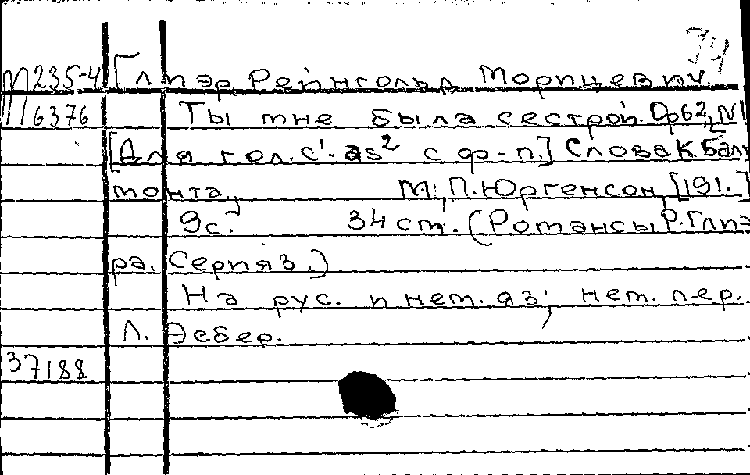 34
М235-4 Глиэр Рейнгольд Морицевич.
116376 Ты мне была сестрой. Ор62, №1
[Для гол. c¹-as² с ф-п.] Слова К. Баль
монта, М., П. Юргенсон, [191.]
9с. 34 ст. (Романсы Р. Глиэ
ра. Серия 3.)
На рус. и нем. яз; нем. пер.
Л. Эсбер.
37188